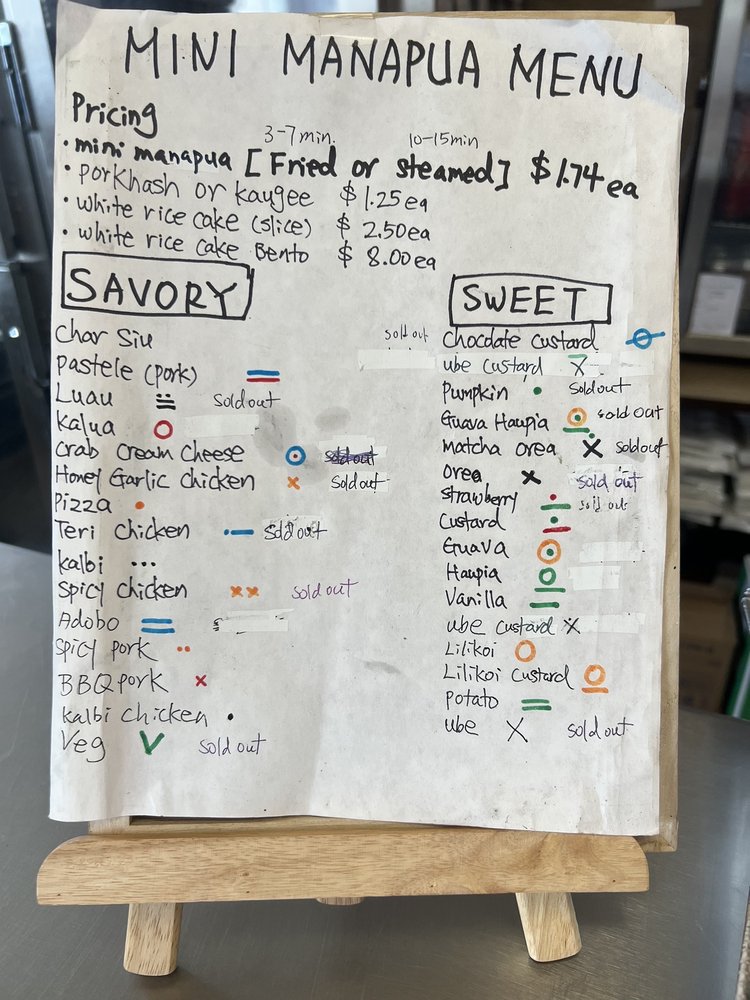 MINI MANAPUA MENU
Pricing
3-7 min. 10-15min
• mini manapua [Fried or steamed] $1.74 ea
• porkhash or kaugee $1.25 ea
• white rice cake (slice) $ 2.50ea
• white rice cake Bento $ 8.00ea
SAVORY
Char Siu
pastele (pork)
Luau sold out
kalua
crab cream cheese sold out
Honey Garlic chicken sold out
Pizza
Teri chicken sold out
kalbi
spicy chicken sold out
Adobo
spicy pork
BBQ pork
kalbi chicken
Veg sold out
SWEET
sold out chocolate custard
ube custard
pumpkin sold out
Guava Haupia sold out
Matcha orea sold out
orea sold out
strawberry sold out
custard
Guava
Haupia
Vanilla
ube custard
Lilikoi
Lilikoi custard
potato
ube sold out